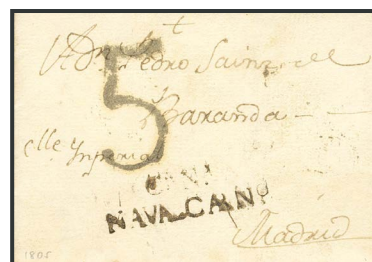 A Dn Pedro Sainz de
5
Baranda
Clle Ynperial
NAVALCARNO
Madrid
1805